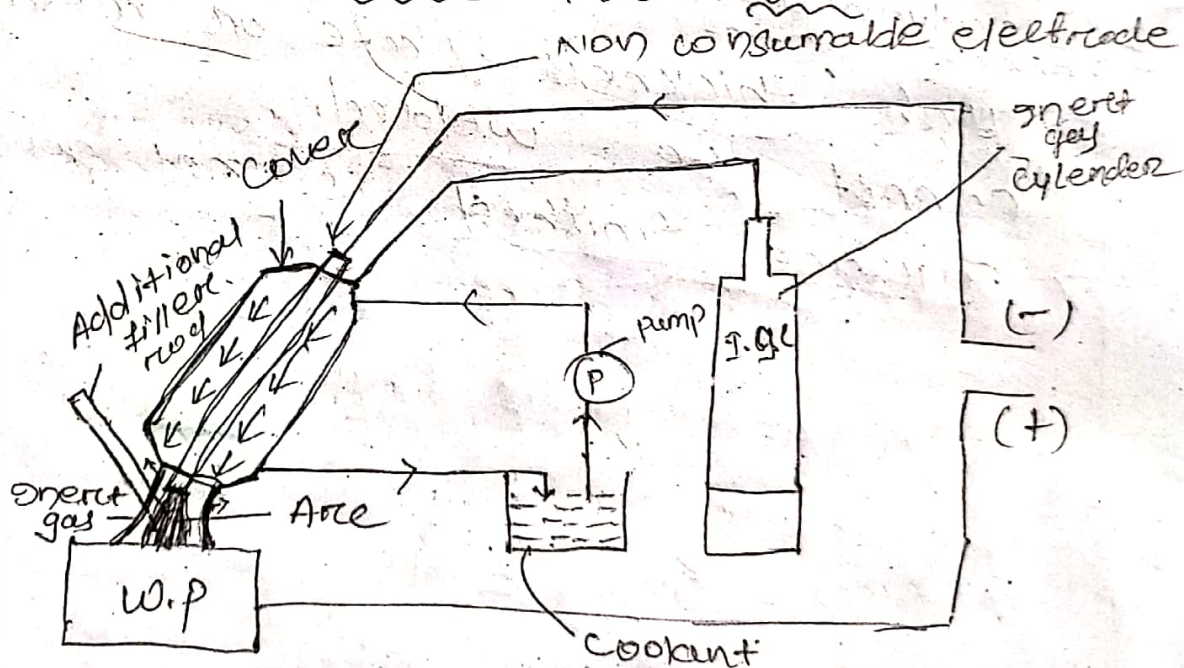 Non consumable electrode
Inert
gas
cylender
Cover
Additional
filler
rod
pump
P
I.gc
(-)
(+)
Inert
gas
Arc
W.P
Coolant